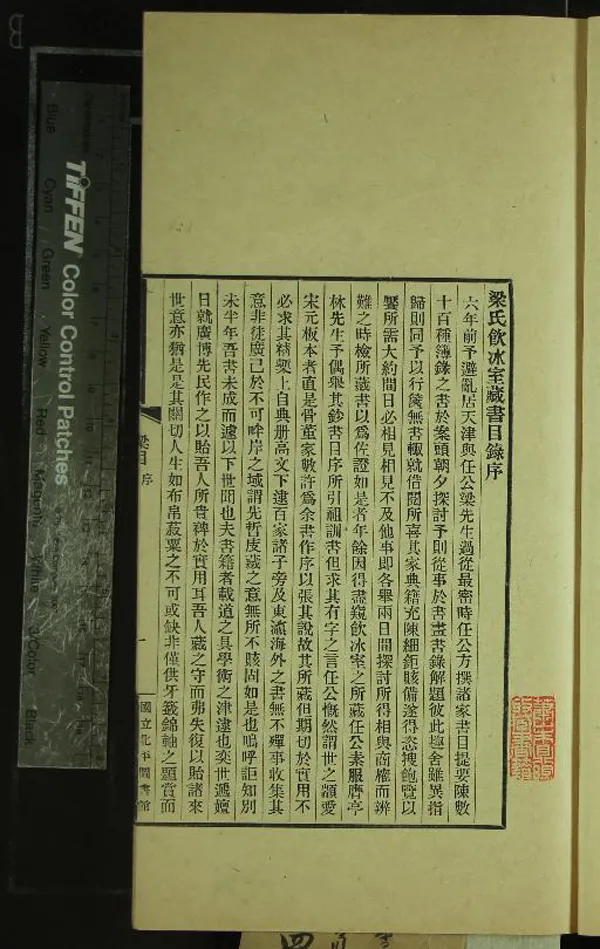 梁氏飲冰室藏書目錄序
六年前予避亂居天津與任公梁先生過從最密時任公方撰諸家書目提要陳數
十百種簿錄之書於案頭朝夕探討予則從事於書畫書錄解題彼此趣舍雖異指
歸則同予以行篋無書輒就借閱所喜其家典籍充陳細鉅賅備遂得恣搜飽覽以
饜所需大約間日必相見相見不及他事即各舉兩日間探討所得相與商榷而辨
難之時檢所藏書以為佐證如是者年餘因得盡窺飲冰室之所藏任公素服膺亭
林先生予偶舉其鈔書自序所引祖訓書但求其有字之言任公慨然謂世之顓愛
宋元板本者直是骨董家數許為余書作序以張其說故其所藏但期切於實用不
必求其精槧上自典册高文下逮百家諸子旁及東瀛海外之書無不殫事收集其
意非徒廣己於不可畔岸之域謂先哲庋藏之意無所不賅固如是也嗚呼詎知別
未半年吾書未成而遽以下世聞也夫書籍者載道之具學術之津逮也奕世遞嬗
日就廣博先民作之以貽吾人所貴裨於實用耳吾人藏之守而弗失復以貽諸來
世意亦猶是是其關切人生如布帛菽粟之不可或缺非僅供牙籤錦軸之題賞而
梁目 序
一
國立北平圖書館
TIFFEN Color Control Patches
Blue
Cyan
Green
Yellow
Red
Magenta
White
3/Color
Black